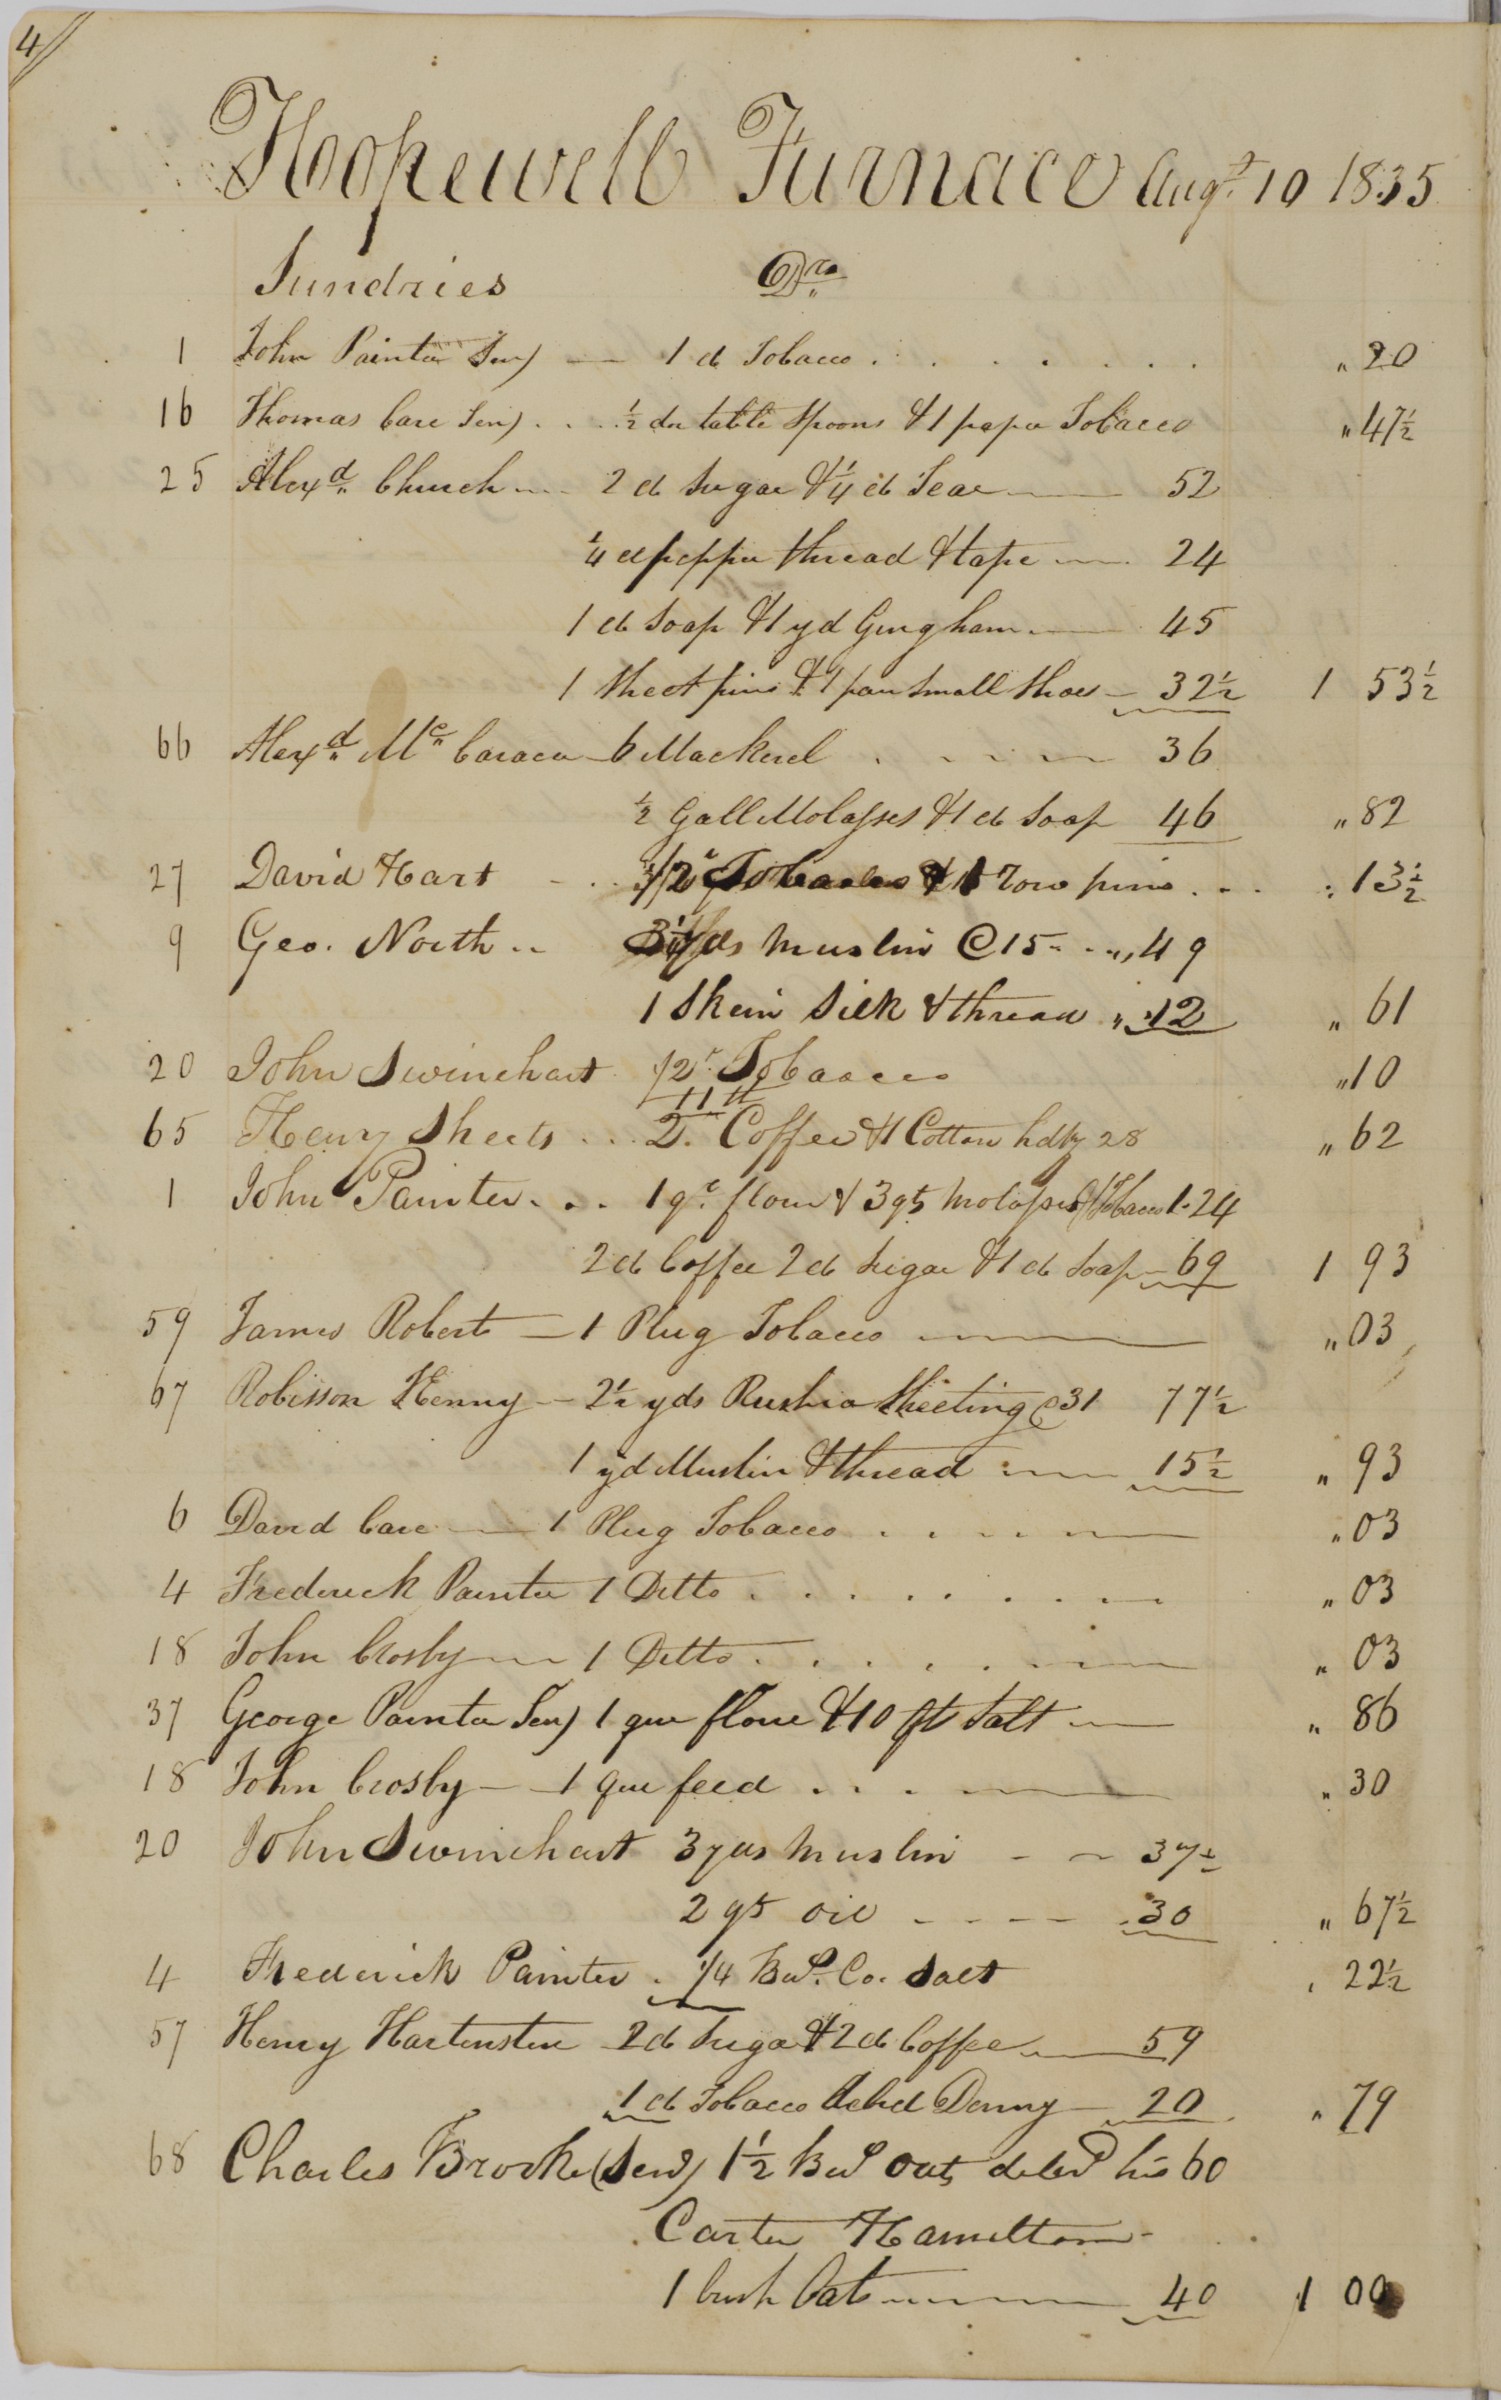 4
Hopewell Furnace Augt 10 1835
Sundries Drs
1 John Painter Senr — 1 lb Tobacco . . . . . . " 20
16 Thomas Care Senr . . . ½ doz table Spoons & 1 paper Tobacco " 47½
25 Alexd Church — 2 lb Sugar & ¼ lb Tea — 52
¼ lb pepper thread & tape — 24
1 lb Soap & 1 yd Gingham — 45
1 Sheet pins & 1 pair Small Shoes — 32½ 1 53½
66 Alexd Mc Caraca 6 Mackerel . . . 36
½ Gall Molasses & 1 lb Soap 46 " 82
27 David Hart - . . Tobacco & 1 Row pins . . . " 13½
9 Geo. North .. 3¼ yds Muslin @ 15 - . . „ 49
1 Skein Silk & thread „ 12 " 61
20 John Swinehart ½ lb Tobacco " 10
65 Henry Sheets . . . 2 lb Coffee & 1 Cotton hdkf 28 " 62
1 John Painter . . . 1 qr flour & 3 qts Molasses Tobacco 1.24
2 lb Coffee 2 lb Sugar & 1 lb Soap — 69 1 93
59 James Robert — 1 Plug Tobacco — " 03
67 Robisson Kenny — 2½ yds Rushia Sheeting @ 31 77½
1 yd Muslin & thread — 15½ " 93
6 David Care — 1 Plug Tobacco . . . . — " 03
4 Frederick Painter 1 Ditto . . . . . . . . " 03
18 John Crosby — 1 Ditto . . . . . — " 03
37 George Painter Senr 1 qur flour & 10 qts Salt — " 86
18 John Crosby — 1 qur feed . . . — " 30
20 John Swinehart 3 yds Muslin - - 37½
2 qts oil - - - - 30 " 67½
4 Frederick Painter . ¼ Bul. Co. Salt " 22½
57 Henry Hartenstine 2 lb Sugar & 2 lb Coffee — 59
1 lb Tobacco deld Denny — 20 " 79
68 Charles Brooke (Senr) 1½ Bul Oats deld his 60
Carter Hamilton
1 bush Oats — 40 1 00